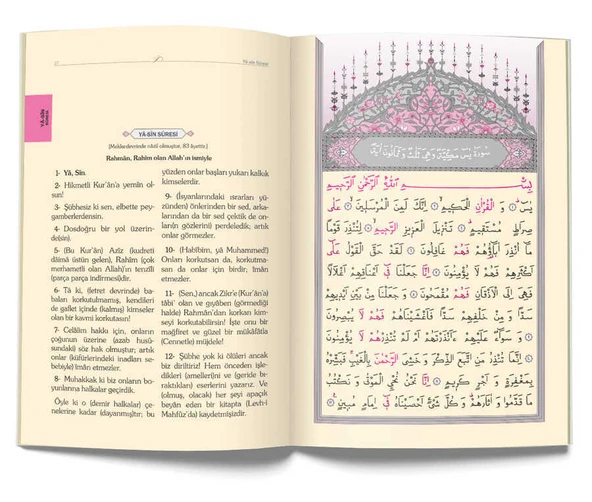 Yâ-sîn Sûresi
YÂ-SÎN
SÛRESİ
YÂ-SÎN SÛRESİ
[Mekke devrinde nâzil olmuştur, 83 âyettir.]
Rahmân, Rahîm olan Allah'ın ismiyle
1- Yâ, Sîn.
2- Hikmetli Kur'ân'a yemîn ol-
sun!
3- Şübhesiz ki sen, elbette pey-
gamberlerdensin.
4- Dosdoğru bir yol üzerin-
de(sin).
5- (Bu Kur'ân) Azîz (kudreti
dâimâ üstün gelen), Rahîm (çok
merhametli olan Allah)'ın tenzîli
(parça parça indirmesi)dir.
6- Tâ ki, (fetret devrinde) ba-
baları korkutulmamış, kendileri
de gaflet içinde (kalmış) kimseler
olan bir kavmi korkutasın!
7- Celâlim hakkı için, onların
çoğunun üzerine (azab husû-
sundaki) söz hak olmuştur; artık
onlar (küfürlerindeki inadları se-
bebiyle) îmân etmezler.
8- Muhakkak ki biz onların bo-
yunlarına halkalar geçirdik.
Öyle ki o (demir halkalar) çe-
nelerine kadar (dayanmış)tır; bu
yüzden onlar başları yukarı kalkık
kimselerdir.
9- (İsyanlarındaki ısrarları yü-
zünden) önlerinden bir sed, arka-
larından da bir sed çektik de on-
lar(ın gözlerin)i perdeledik, artık
onlar görmezler.
10- (Habîbim, yâ Muhammed!)
Onları korkutsan da, korkutma-
san da onlar için birdir; îmân
etmezler.
11- (Sen,) ancak Zikr'e (Kur'ân'a)
tâbi' olan ve gıyâben (görmediği
halde) Rahmân'dan korkan kim-
seyi korkutabilirsin! İşte onu bir
mağfiret ve güzel bir mükâfâtla
(Cennetle) müjdele!
12- Şübhe yok ki ölüleri ancak
biz diriltiriz! Hem önceden işle-
dikleri (ameller)ini ve (geride bı-
raktıkları) eserlerini yazarız. Ve
(olmuş, olacak) her şeyi apaçık
beyân eden bir kitapta (Levh-i
Mahfûz'da) kaydetmişizdir.
سورة يس مكية وهى ثلث وثمانون آية
بِسْمِ اللّٰهِ الرَّحْمٰنِ الرَّحِيمِ
يٰسٓ ﴿١﴾ وَ الْقُرْاٰنِ الْحَكِيمِ ﴿٢﴾ اِنَّكَ لَمِنَ الْمُرْسَلِينَ ﴿٣﴾ عَلٰى
صِرَاطٍ مُسْتَقِيمٍ ﴿٤﴾ تَنْزِيلَ الْعَزِيزِ الرَّحِيمِ ﴿٥﴾ لِتُنْذِرَ قَوْمًا
مَٓا اُنْذِرَ اٰبَٓاؤُهُمْ فَهُمْ غَافِلُونَ ﴿٦﴾ لَقَدْ حَقَّ الْقَوْلُ عَلٰٓى
اَكْثَرِهِمْ فَهُمْ لَا يُؤْمِنُونَ ﴿٧﴾ اِنَّا جَعَلْنَا فِٓى اَعْنَاقِهِمْ اَغْلَالًا
فَهِىَ اِلَى الْاَذْقَانِ فَهُمْ مُقْمَحُونَ ﴿٨﴾ وَ جَعَلْنَا مِنْ بَيْنِ اَيْدِيهِمْ
سَدًّا وَ مِنْ خَلْفِهِمْ سَدًّا فَاَغْشَيْنَاهُمْ فَهُمْ لَا يُبْصِرُونَ
﴿٩﴾ وَ سَوَٓاءٌ عَلَيْهِمْ ءَاَنْذَرْتَهُمْ اَمْ لَمْ تُنْذِرْهُمْ لَا يُؤْمِنُونَ
﴿١٠﴾ اِنَّمَا تُنْذِرُ مَنِ اتَّبَعَ الذِّكْرَ وَ خَشِىَ الرَّحْمٰنَ بِالْغَيْبِ فَبَشِّرْهُ
بِمَغْفِرَةٍ وَ اَجْرٍ كَرِيمٍ ﴿١١﴾ اِنَّا نَحْنُ نُحْىِ الْمَوْتٰى وَ نَكْتُبُ
مَا قَدَّمُوا وَ اٰثَارَهُمْ وَ كُلَّ شَىْءٍ اَحْصَيْنَاهُ فِٓى اِمَامٍ مُبِينٍ ﴿١٢﴾